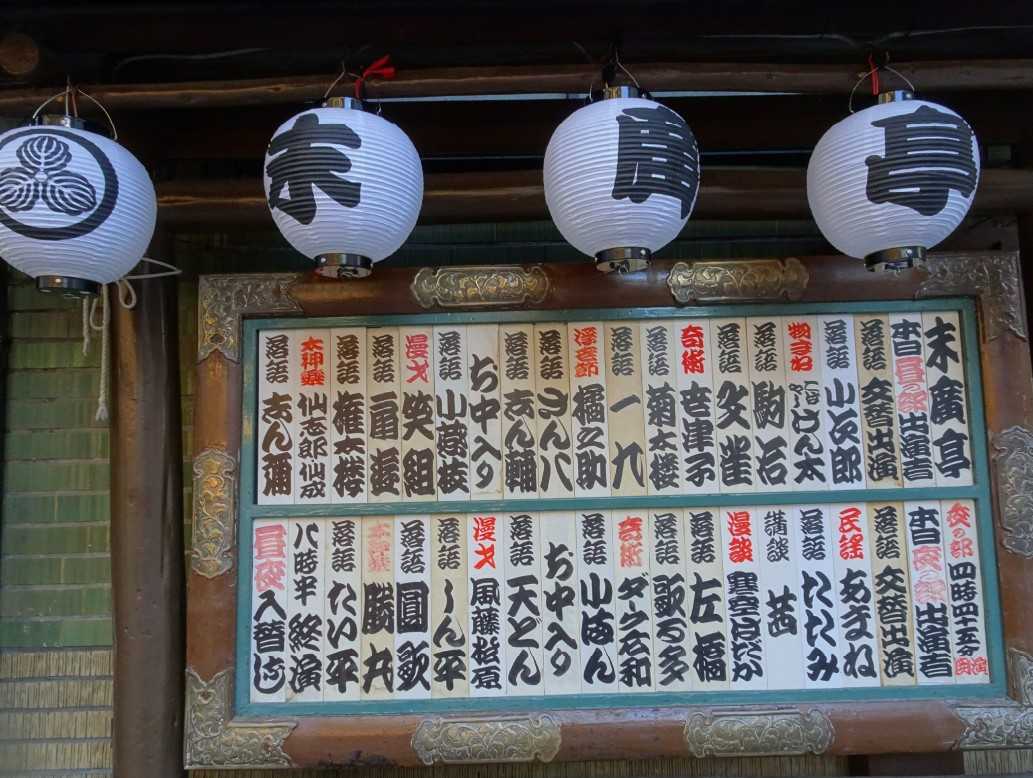 末
廣
亭
末廣亭
本日昼の部出演者
落語 交替出演
落語 小次郎
物まね けん太
落語 駒治
落語 文雀
奇術 世津子
落語 菊太楼
落語 一九
浮世節 橘之助
落語 さん八
落語 志ん輔
お中入り
落語 小燕枝
漫才 笑組
落語 扇遊
落語 権太楼
太神楽 仙志郎仙成
落語 志ん彌
夜の部 四時四十五分 開演
本日夜の部出演者
落語 交替出演
民謡 あまね
落語 たたみ
講談 茜
漫談 寒空はだか
落語 左橋
落語 歌る多
奇術 ダーク広和
落語 小はん
お中入り
落語 天どん
漫才 風藤松原
落語 しん平
落語 圓歌
太神楽 勝丸
落語 たい平
八時半終演
昼夜入替なし